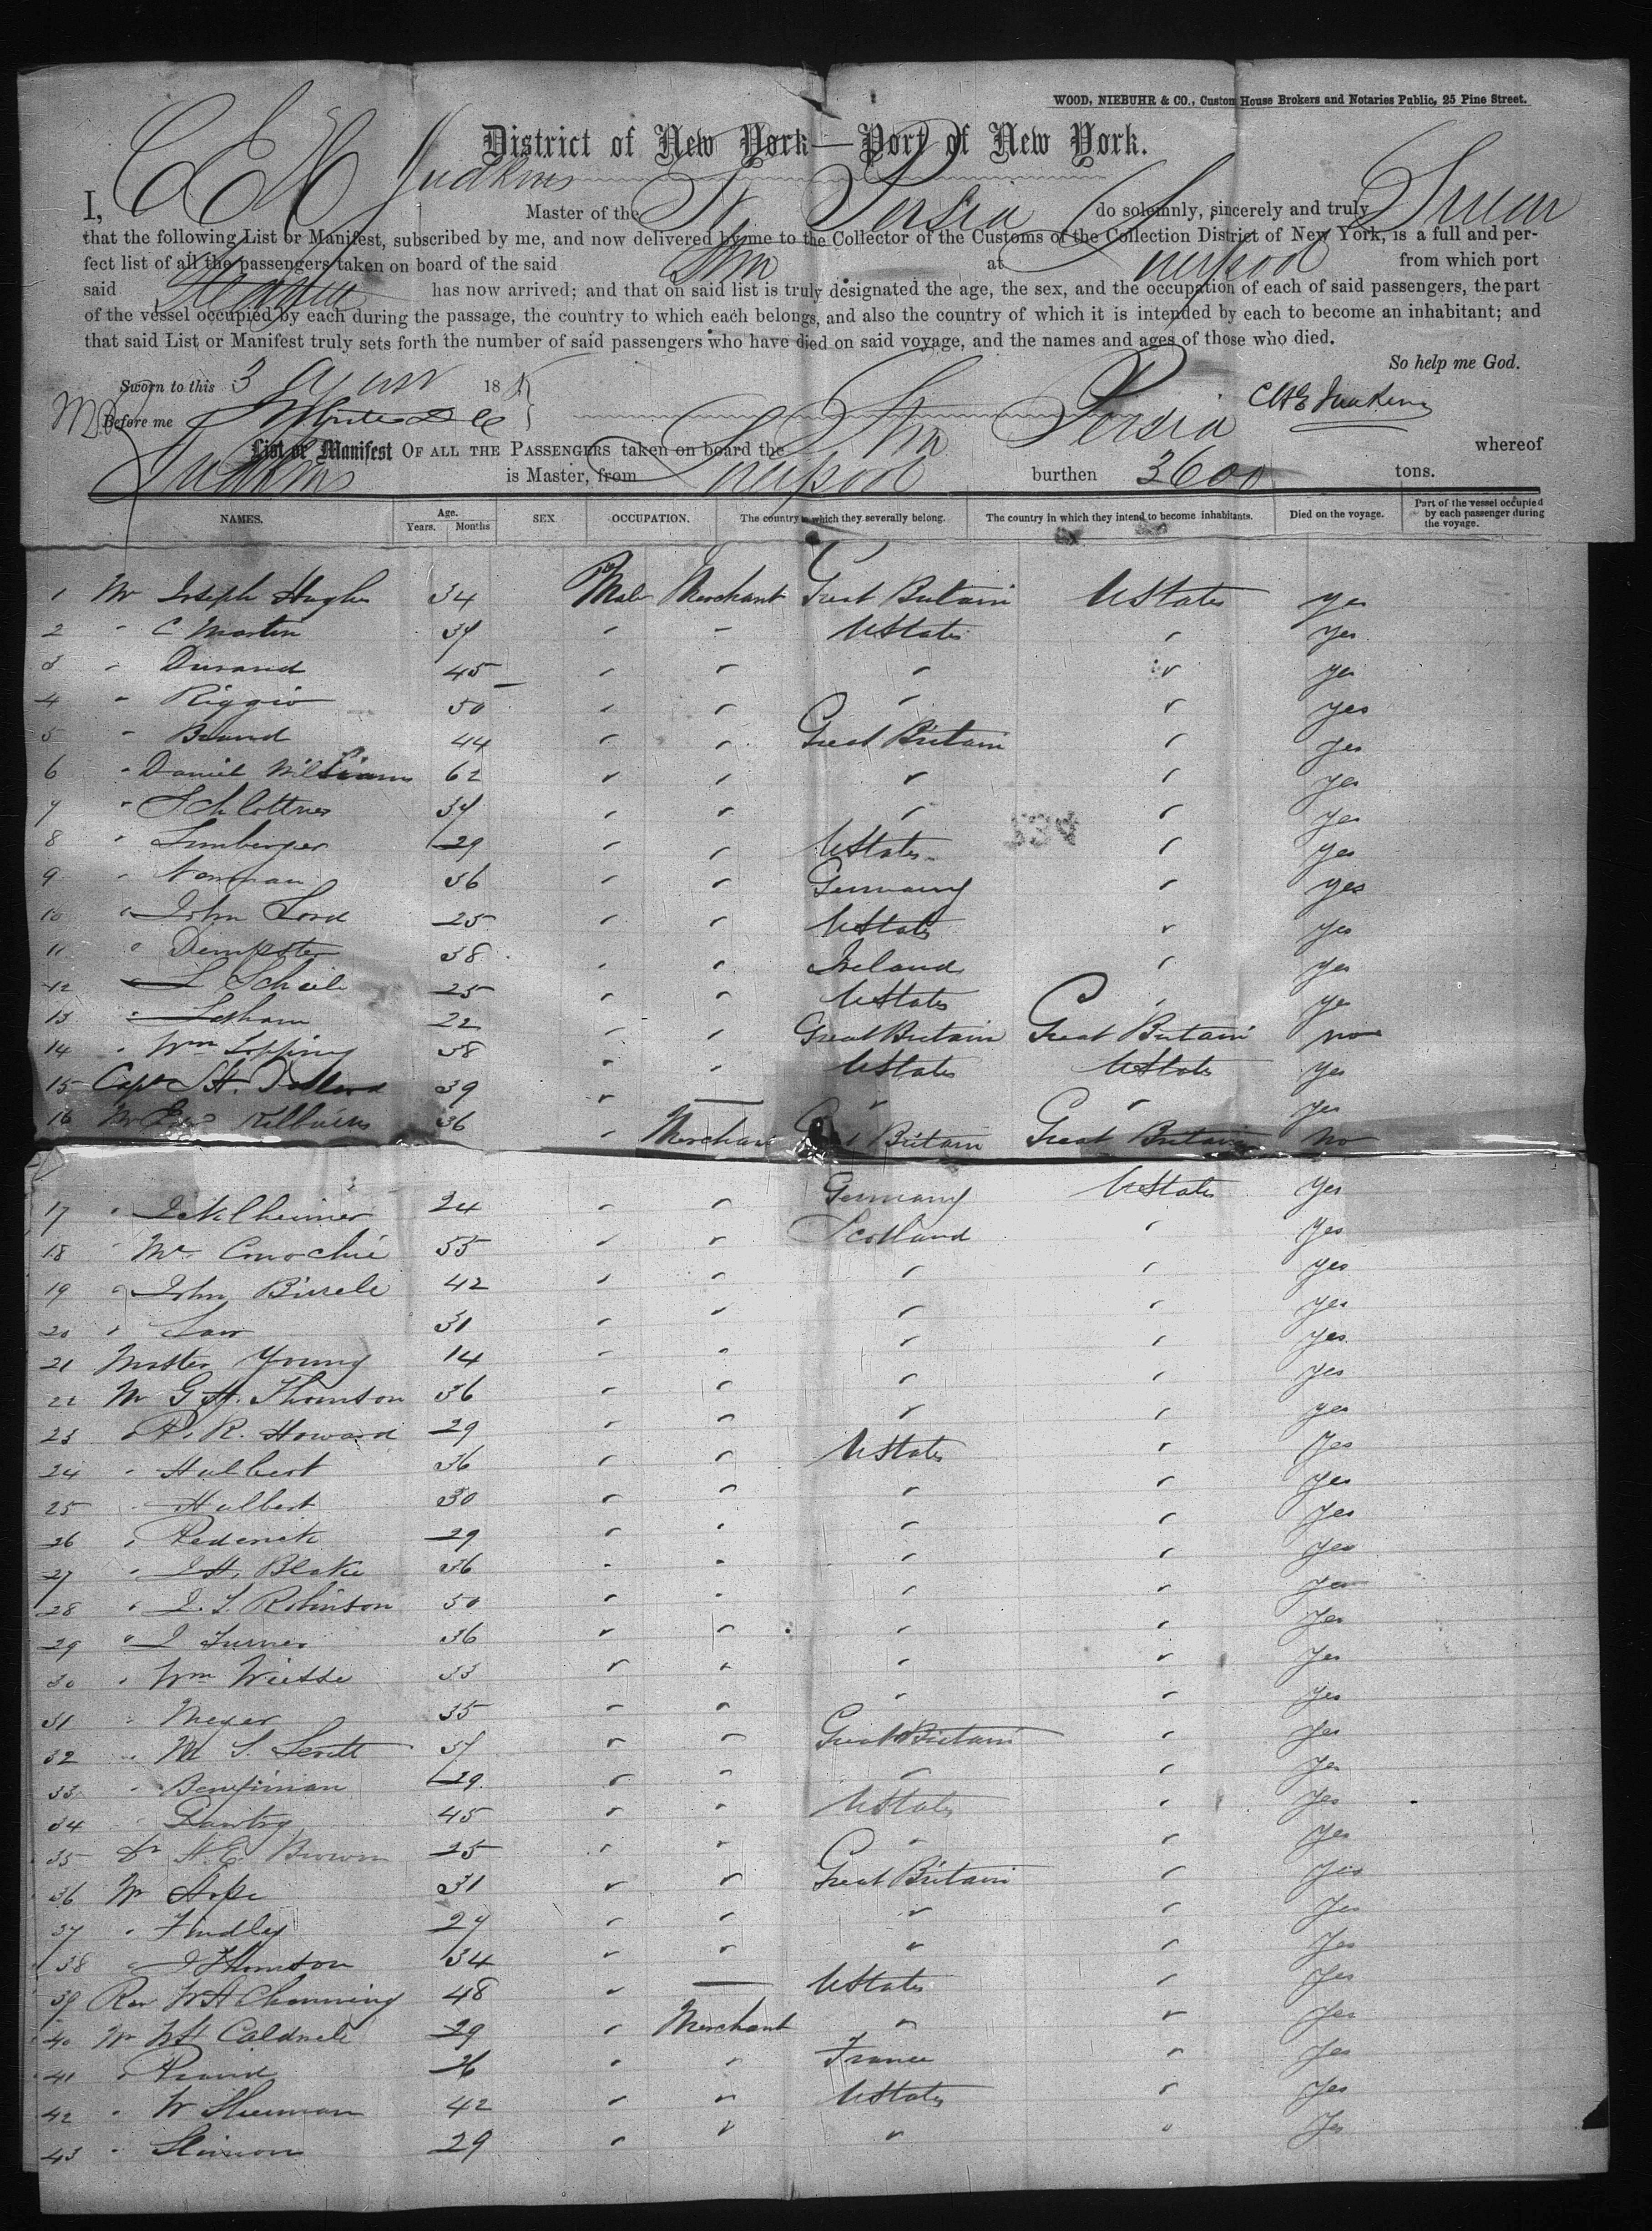 WOOD, NIEBUHR & CO., Custom House Brokers and Notaries Public, 25 Pine Street.
District of New York—Port of New York.
I, C E H Judkins Master of the Str Persia do solemnly, sincerely and truly Swear
that the following List or Manifest, subscribed by me, and now delivered by me to the Collector of the Customs of the Collection District of New York, is a full and per-
fect list of all the passengers taken on board of the said Stm at Liverpool from which port
said Steamer has now arrived; and that on said list is truly designated the age, the sex, and the occupation of each of said passengers, the part
of the vessel occupied by each during the passage, the country to which each belongs, and also the country of which it is intended by each to become an inhabitant; and
that said List or Manifest truly sets forth the number of said passengers who have died on said voyage, and the names and ages of those who died.
So help me God.
Sworn to this 3 18
Before me C H E Judkins
List or Manifest OF ALL THE PASSENGERS taken on board the Stm Persia whereof
Judkins is Master, from Liverpool burthen 3600 tons.
NAMES. Age. Years. Months SEX OCCUPATION. The country to which they severally belong. The country in which they intend to become inhabitants. Died on the voyage. Part of the vessel occupied by each passenger during the voyage.
1 Mr Joseph Hughes 34 Male Merchant Great Britain UStates yes
2 " C Martin 37 " " UStates " yes
3 " Durand 45 " " " " yes
4 " Riggio 50 " " " " yes
5 " Brand 44 " " Great Britain " yes
6 " Daniel Williams 62 " " " " yes
7 " 37 " " " " yes
8 " Limberger 29 " " UStates " yes
9 " Norman 36 " " Germany " yes
10 " John Lord 25 " " UStates " yes
11 " Dempster 38 " " Ireland " yes
12 " L 25 " " UStates " yes
13 " 22 " " Great Britain Great Britain no
14 " Wm Topping 38 " " UStates UStates yes
15 Capt 39 " — " " yes
16 Mr 36 " Merchant Britain Great Britain no
17 " Ickelheimer 24 " " Germany UStates yes
18 " Mc Conochie 55 " " Scotland " yes
19 " John Birrell 42 " " " " yes
20 " Law 31 " " " " yes
21 Master Young 14 " " " " yes
22 Mr G H. Thomson 36 " " " " yes
23 " R. Howard 29 " " " " yes
24 " Hulbert 36 " " UStates " yes
25 " Hulbert 30 " " " " yes
26 " 29 " " " " yes
27 " J H. Blake 36 " " " " yes
28 " J. S. Robinson 50 " " " " yes
29 " J Turner 36 " " " " yes
30 " Wm 33 " " " " yes
31 " Meyer 35 " " " " yes
32 " M S. 37 " " Great Britain " yes
33 " 29 " " " " yes
34 " 45 " " UStates " yes
35 Dr H. E. Brown 25 " " " " yes
36 Mr Hope 31 " " Great Britain " yes
37 " Findley 27 " " " " yes
38 " J Thomson 34 " " " " yes
39 Rev W H Channing 48 " — UStates " yes
40 Mr W H Caldwell 29 " Merchant " " yes
41 " 26 " " France " yes
42 " W Sherman 42 " " UStates " yes
43 " 29 " " " " yes